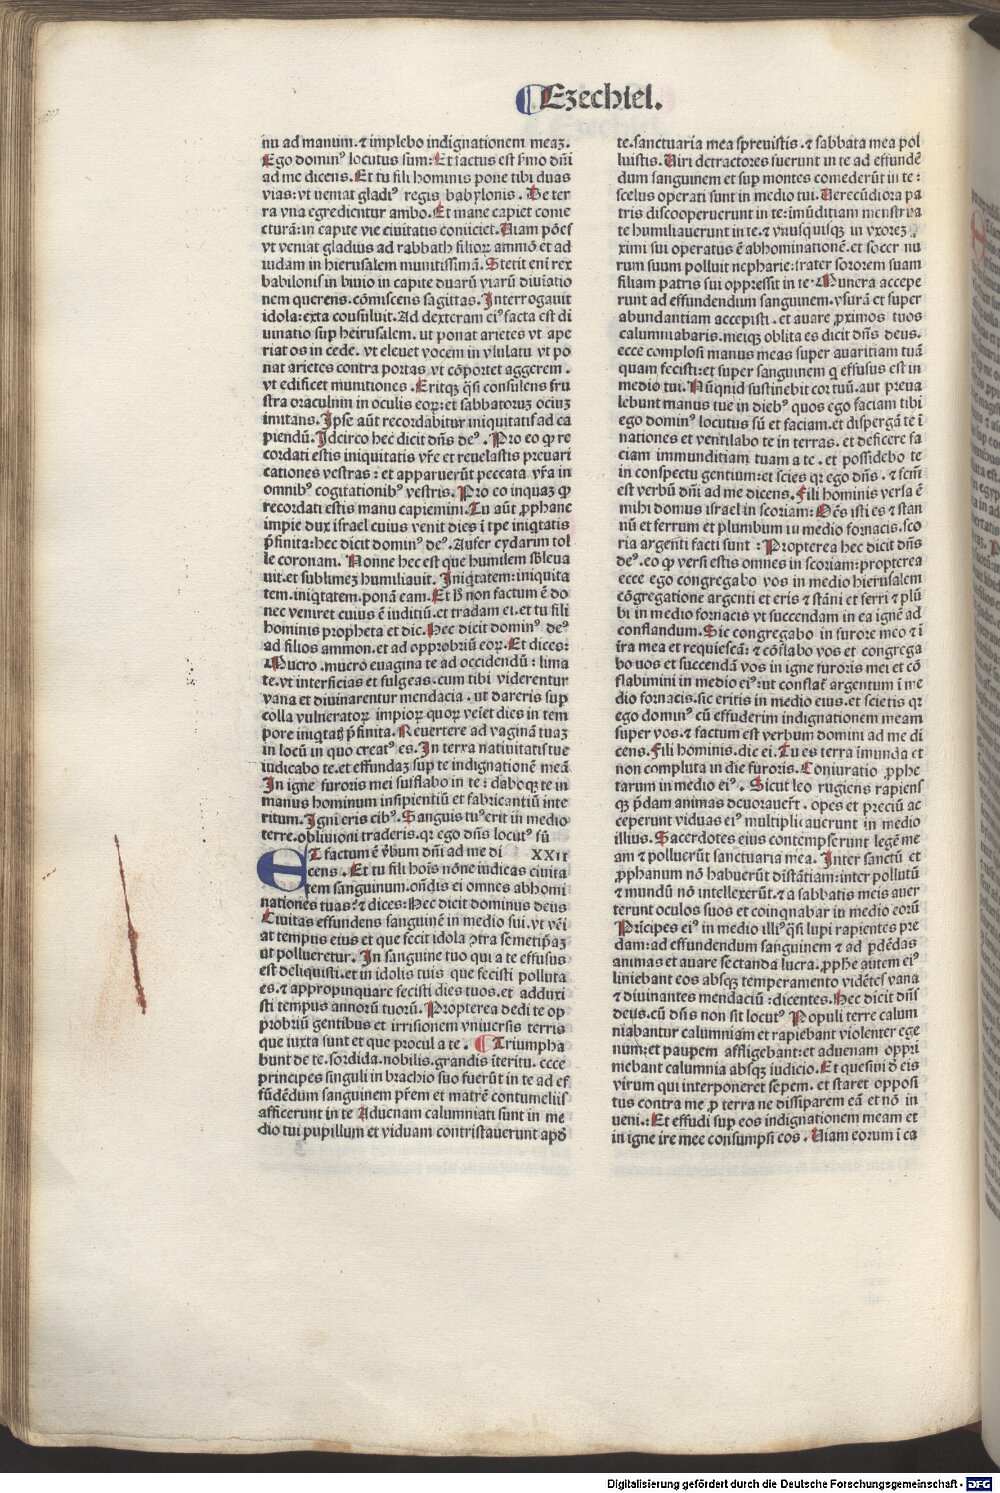 Ezechiel.
nu ad manum. ⁊ implebo indignationem meaꝫ.
Ego dominꝰ locutus sum: Et factus est sꝛmo dñi
ad me dicens. Et tu fili hominis pone tibi duas
vias: vt veniat gladiꝰ regis babylonis. De ter
ra vna egredientur ambo. Et mane capiet conie
cturã: in capite vie ciuitatis conijciet. Uiam põeſ
vt veniat gladius ad rabbath filioꝝ ammõ et ad
iudam in hierusalem munitissimã. Stetit eni rex
babilonis in biuio in capite duarũ viarũ diuiatio
nem querens. cõmiscens sagittas. Interrogauit
idola: exta consuluit. Ad dexteram eiꝰ facta est di
uinatio suꝑ heirusalem. ut ponat arietes vt ape
riat os in cede. vt eleuet vocem in vlulatu vt po
nat arietes contra portas vt cõportet aggerem.
vt edificet munitiones. Eritqꝫ q̃si consulens fru
stra oraculum in oculis eoꝝ: et sabbatorum ocium
imitans. Ipse aũt recordabitur iniquitatis ad ca
piendũ. Idcirco hec dicit dñs deꝰ. Pro eo ꝙ re
cordati estis iniquitatis vr̃e et reuelastis preuari
cationes vestras: et apparuerũt peccata vr̃a in
omnibꝰ cogitationibꝰ vestris. Pro eo inquaꝫ ꝙ
recordati estis manu capiemini. Tu aũt ꝓphane
impie dux israel cuius venit dies ĩ tꝑe iniq̇tatis
p̃finita: hec dicit dominꝰ deꝰ. Aufer cydarim tol
le coronam. Nonne hec est que humilem sb̃leua
uit. et sublimeꝫ humiliauit. Iniq̇tatem: iniquita
tem. iniq̇tatem. ponã eam. Et hͦ non factum ẽ do
nec veniret cuius ẽ iuditiũ. et tradam ei. et tu fili
hominis propheta et dic. Hec dicit dominꝰ deꝰ
ad filios ammon. et ad opprobriũ eoꝝ. Et dices:
Mucro. mucro euagina te ad occidendũ: lima
te. vt interficias et fulgeas. cum tibi viderentur
vana et diuinarentur mendacia. ut dareris suꝑ
colla vulneratoꝝ impioꝝ quoꝝ veĩet dies in tem
pore iniq̇tatꝭ p̃finita. Reuertere ad vaginã tuaꝫ
in locũ in quo creatꝰ es. In terra natiuitatis tue
iudicabo te. et effundaꝫ sup te indignationẽ meã
In igne furoris mei sufflabo in te: daboqꝫ te in
manus hominum insipientiũ et fabricantiũ inte
ritum. Igni eris cibꝰ. Sanguis tuꝰ erit in medio
terre. obliuioni traderis. qꝛ ego dñs locutꝰ sũ
ET factum ẽ ṽbum dñi ad me di XXII
cens. Et tu fili hoĩs nõne iudicas ciuita
tem sanguinum. oñdis ei omnes abhomi
nationes tuas? ⁊ dices: Hec dicit dominus deus
Ciuitas effundens sanguinẽ in medio sui. vt vẽi
at tempus eius et que fecit idola ↄtra semetip̃aꝫ
ut pollueretur. In sanguine tuo qui a te effusus
est deliquisti. et in idolis tuis que fecisti polluta
es. ⁊ appropinquare fecisti dies tuos. et adduxi
sti tempus annorũ tuorũ. Propterea dedi te op
probriũ gentibus et irrisionem vniuersis terris
que iuxta sunt et que procul a te. Triumpha
bunt de te. sordida. nobilis. grandis ĩteritu. ecce
principes singuli in brachio suo fuerũt in te ad ef
fũdẽdum sanguinem pr̃em et matrẽ contumeliis
affecerunt in te Aduenam calumniati sunt in me
dio tui pupillum et viduam contristauerunt apð
te. sanctuaria mea spreuistis. ⁊ sabbata mea pol
luistis. Uiri detractores fuerunt in te ad effundẽ
dum sanguinem et suꝑ montes comederũt in te:
scelus operati sunt in medio tui. Uerecũdiora pa
tris discooperuerunt in te: imũditiam menstrua
te humiliauerunt in te. ⁊ vnusquisqꝫ in vxoreꝫ
ximi sui operatus ẽ abhominationẽ. et socer nu
rum suum polluit nepharie: frater sororem suam
filiam patris sui oppressit in te. Munera accepe
runt ad effundendum sanguinem. vsurã et super
abundantiam accepisti. et auare ꝓximos tuos
calumniabaris. meiqꝫ oblita es dicit dñs deus.
ecce complosi manus meas super auaritiam tuã
quam fecisti: et super sanguinem q̇ effusus est in
medio tui. Nũquid sustinebit cor tuũ. aut preua
lebunt manus tue in diebꝰ quos ego faciam tibi
ego dominꝰ locutus sũ et faciam. et dispergã te ĩ
nationes et ventilabo te in terras. et deficere fa
ciam immunditiam tuam a te. et possidebo te
in conspectu gentium: et scies qꝛ ego dñs. ⁊ fcm̃
est verbũ dñi ad me dicens. Fili hominis versa ẽ
mihi domus israel in scoriam: Oẽs isti es ⁊ stan
nũ et ferrum et plumbum iu medio fornacis. sco
ria argenti facti sunt: Propterea hec dicit dñs
deꝰ. eo ꝙ versi estis omnes in scoriam: propterea
ecce ego congregabo vos in medio hierusalem
cõgregatione argenti et eris ⁊ stãni et ferri ⁊ plũ
bi in medio fornacis vt succendam in ea ignẽ ad
conflandum. Sic congregabo in furore meo ⁊ ĩ
ĩra mea et requiescã: ⁊ cõflabo vos et congrega
bo uos et succendã vos in igne furoris mei et cõ
flabimini in medio eiꝰ: ut conflat̃ argentum ĩ me
dio fornacis. sic eritis in medio eius. et scietis qꝛ
ego dominꝰ cũ effuderim indignationem meam
super vos. ⁊ factum est verbum domini ad me di
cens. Fili hominis. dic ei. Tu es terra imunda et
non compluta in die furoris. Coniuratio ꝓphe
tarum in medio eiꝰ. Sicut leo rugiens rapiens
qꝫ p̃dam animas deuorauert̃. opes et preciũ ac
ceperunt viduas eiꝰ multiplicauerunt in medio
illius. Sacerdotes eius contempserunt legẽ me
am ⁊ polluerũt sanctuaria mea. Inter sanctũ et
ꝓphanum nõ habuerũt distãtiam: inter pollutũ
⁊ mundũ nõ intellexerũt. ⁊ a sabbatis meis auer
terunt oculos suos et coinquinabar in medio eorũ
Prĩcipes eiꝰ in medio illiꝰ q̃si lupi rapientes pre
dam: ad effundendum sanguinem ⁊ ad ꝑdẽdas
animas et auare sectanda lucra. ꝓphe autem eiꝰ
liniebant eos absqꝫ temperamento vidẽtes vana
⁊ diuinantes mendaciũ: dicentes. Hec dicit dñs
deus. cũ dñs non sit locutꝰ Populi terre calum
niabantur calumniam et rapiebant violenter ege
num: et paupem affligebant: et aduenam oppri
mebant calumnia absqꝫ iudicio. Et quesiui ð eis
virum qui interponeret sepem. et staret opposi
tus contra me ꝓ terra ne dissiparem eã et nõ in
ueni.: Et effudi sup eos indignationem meam et
in igne ire mee consumpsi eos. Uiam eorum ĩ ca
Digitalisierung gefördert durch die Deutsche Forschungsgemeinschaft - DFG